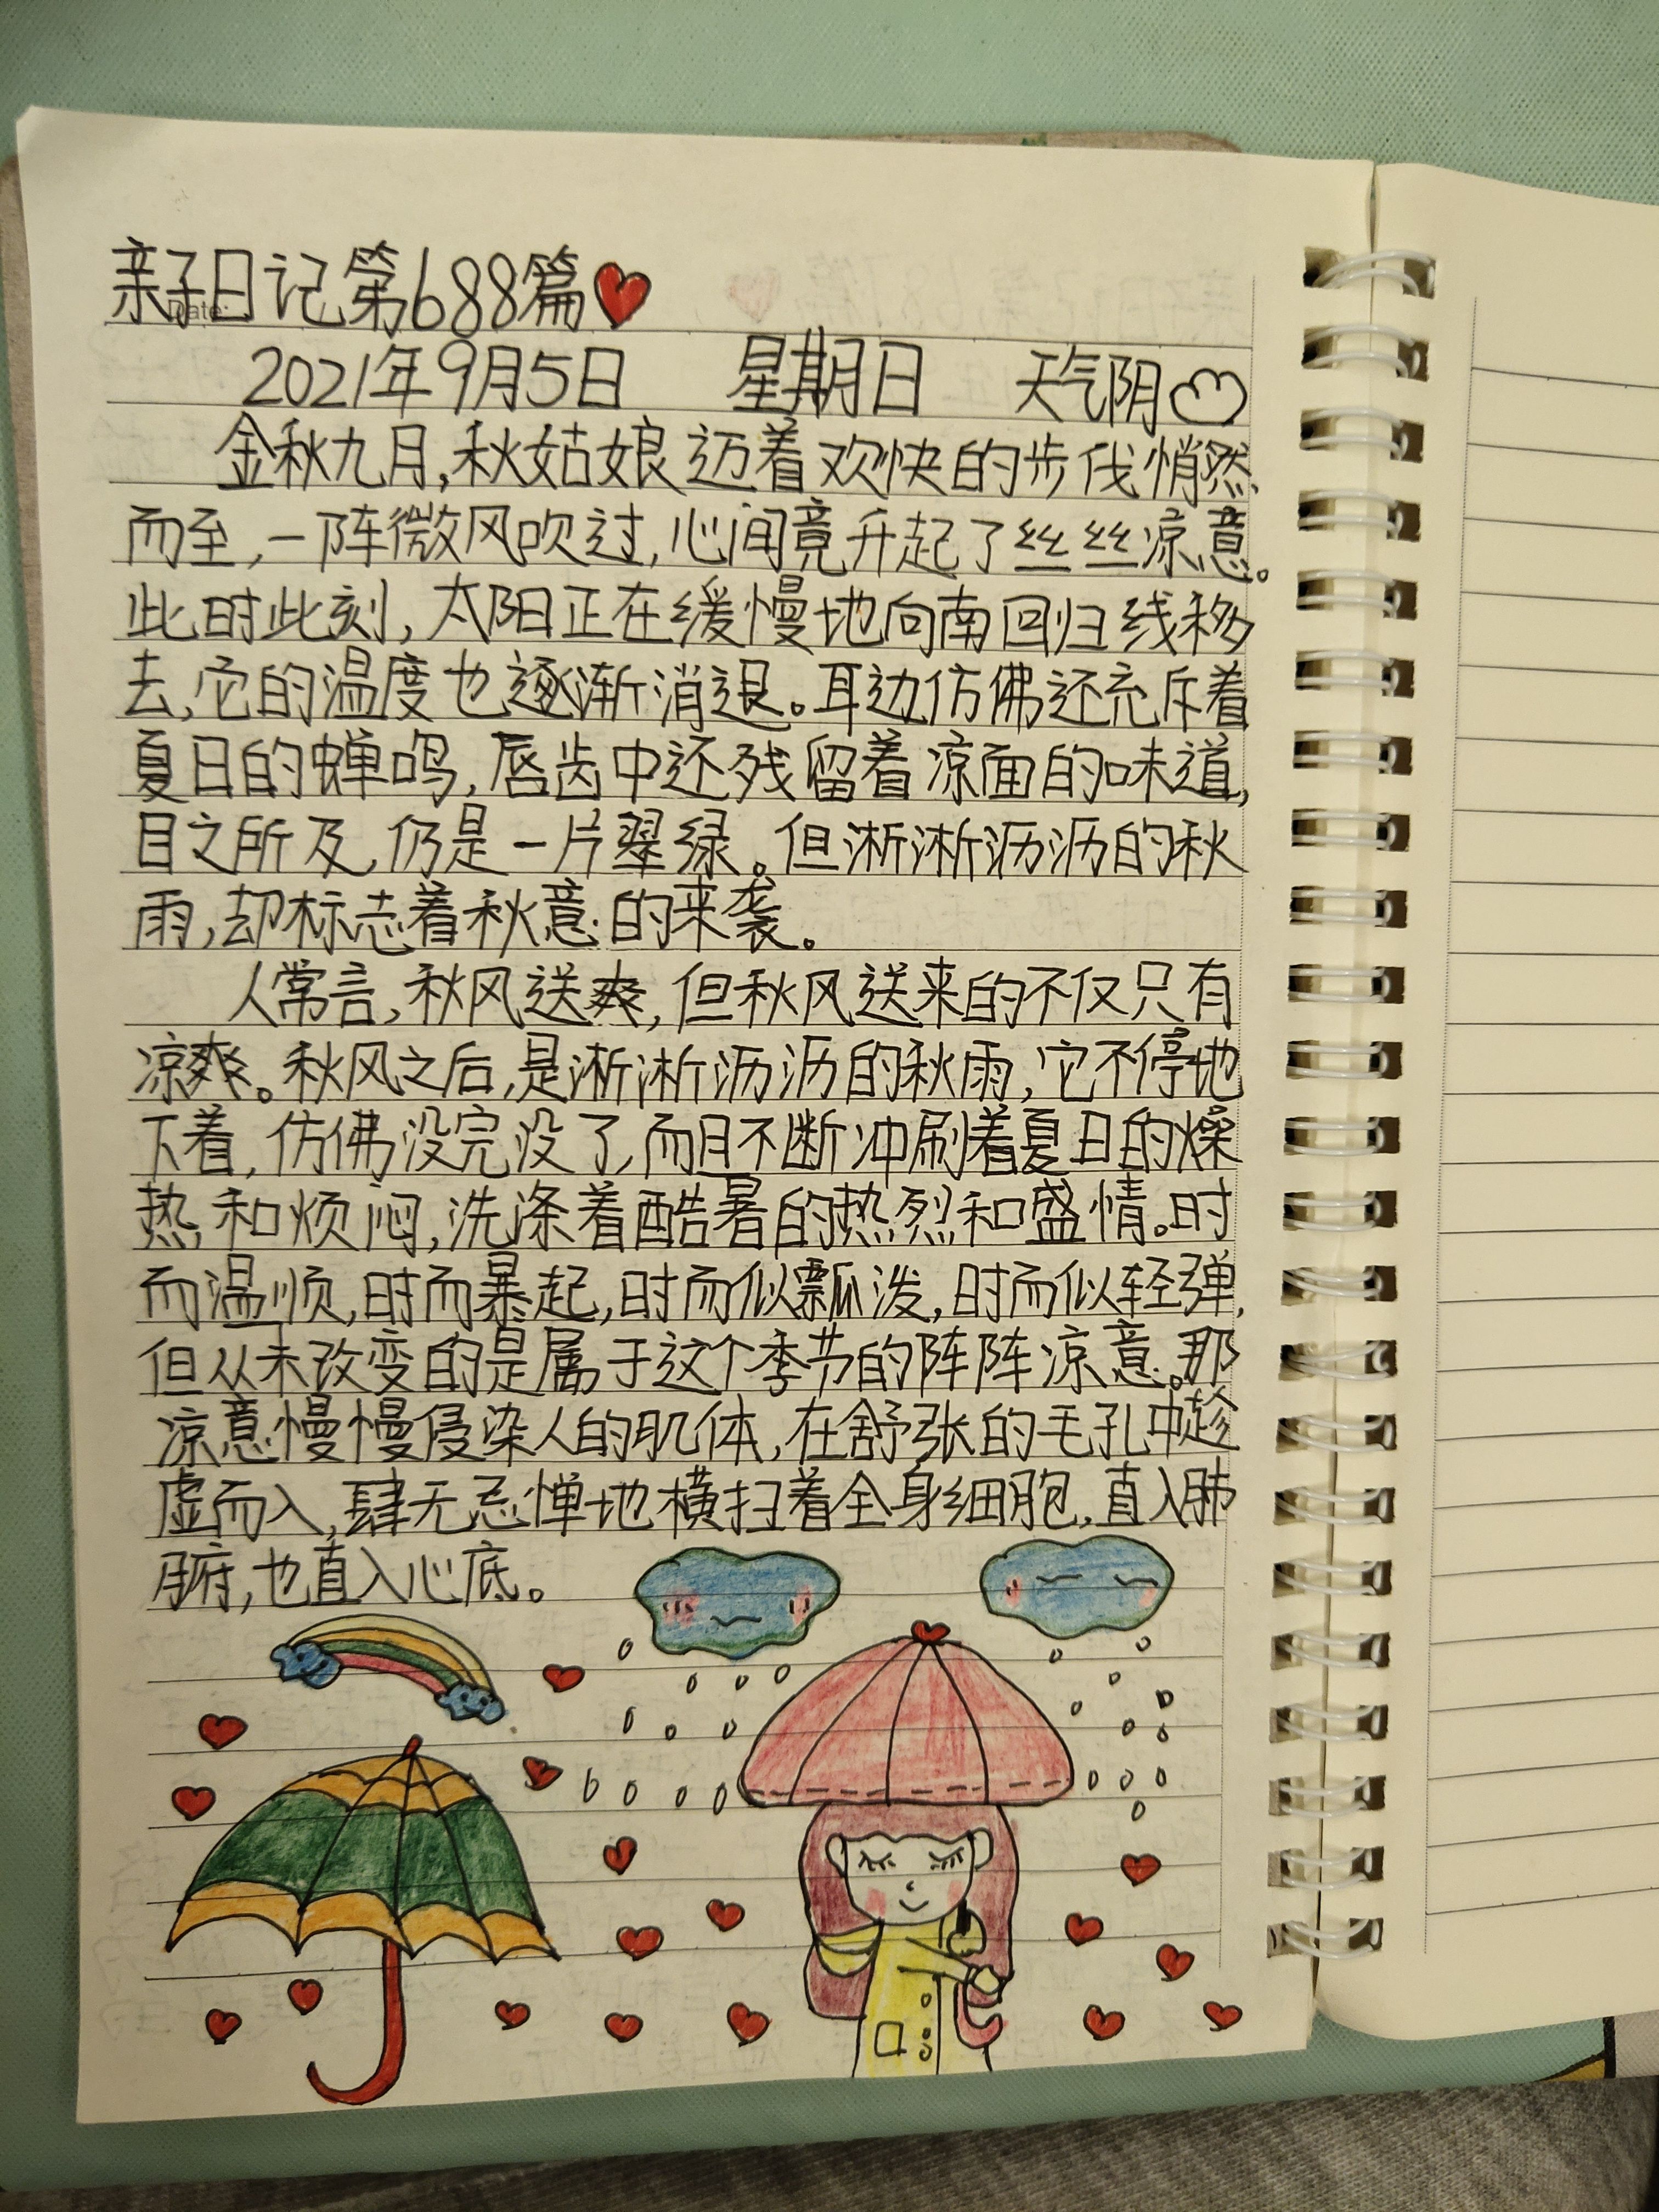 亲子日记第688篇
2021年9月5日 星期日 天气阴
金秋九月,秋姑娘迈着欢快的步伐悄然
而至,一阵微风吹过,心间竟升起了丝丝凉意。
此时此刻,太阳正在缓慢地向南回归线移
去,它的温度也逐渐消退。耳边仿佛还充斥着
夏日的蝉鸣,唇齿中还残留着凉面的味道,
目之所及,仍是一片翠绿。但淅淅沥沥的秋
雨,却标志着秋意的来袭。
人常言,秋风送爽,但秋风送来的不仅只有
凉爽。秋风之后,是淅淅沥沥的秋雨,它不停地
下着,仿佛没完没了,而且不断冲刷着夏日的燥
热和烦闷,洗涤着酷暑的热烈和盛情。时
而温顺,时而暴起,时而似瓢泼,时而似轻弹,
但从未改变的是属于这个季节的阵阵凉意。那
凉意慢慢侵染人的肌体,在舒张的毛孔中趁
虚而入,肆无忌惮地横扫着全身细胞,直入肺
腑,也直入心底。